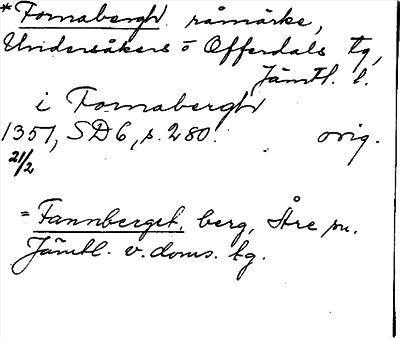 *Fornabergh råmärke,
Undersåkers o Offerdals tg,
Jämtl. l.
i Fornabergh
1351, SD6, s. 280. orig.
21/2
= Fannberget, berg, Åre sn.
Jämtl. v. doms. tg.